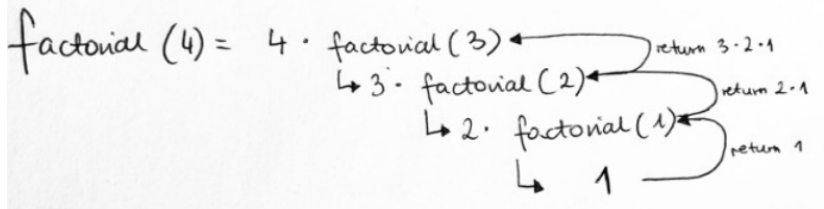 factorial (4) = 4 · factorial (3)
return 3·2·1
↳ 3 · factorial (2)
return 2·1
↳ 2 · factorial (1)
return 1
↳ 1